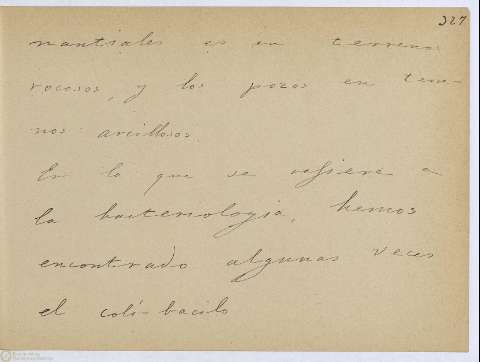 327
mantiales es en terrenos
rocosos, y los pozos en terre-
nos arcillosos.
En lo que se refiere a
la bacteriologia, hemos
encontrado algunas veces
el coli-bacilo